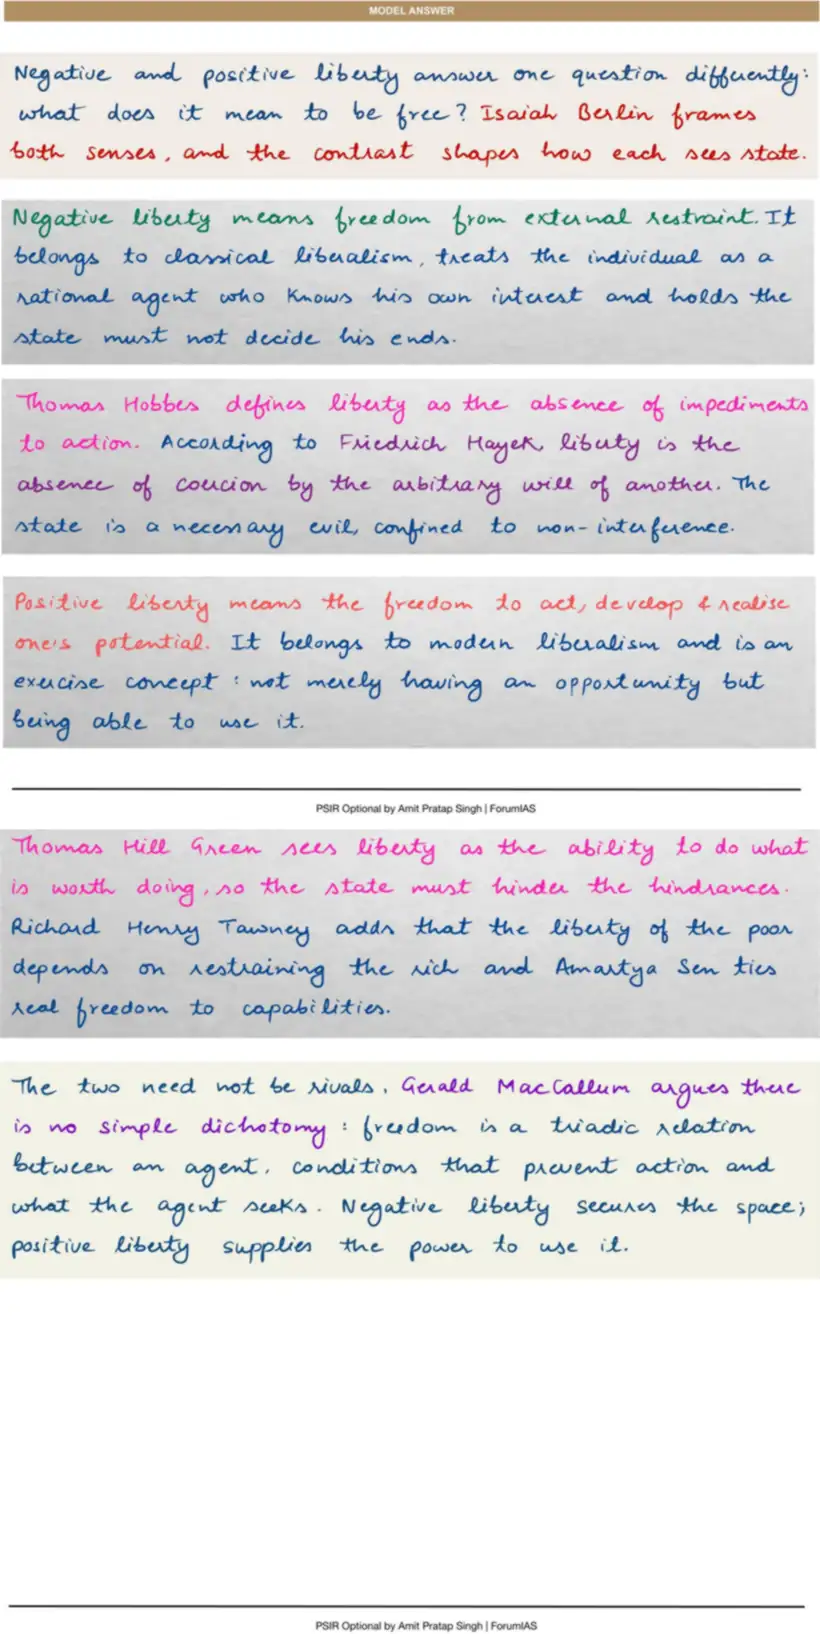 MODEL ANSWER
Negative and positive liberty answer one question differently:
what does it mean to be free? Isaiah Berlin frames
both senses, and the contrast shapes how each sees state.
Negative liberty means freedom from external restraint. It
belongs to classical liberalism, treats the individual as a
rational agent who knows his own interest and holds the
state must not decide his ends.
Thomas Hobbes defines liberty as the absence of impediments
to action. According to Friedrich Hayek, liberty is the
absence of coercion by the arbitrary will of another. The
state is a necessary evil, confined to non-interference.
Positive liberty means the freedom to act, develop & realise
one's potential. It belongs to modern liberalism and is an
exercise concept: not merely having an opportunity but
being able to use it.
PSIR Optional by Amit Pratap Singh | ForumIAS
Thomas Hill Green sees liberty as the ability to do what
is worth doing, so the state must hinder the hindrances.
Richard Henry Tawney adds that the liberty of the poor
depends on restraining the rich and Amartya Sen ties
real freedom to capabilities.
The two need not be rivals. Gerald MacCallum argues there
is no simple dichotomy: freedom is a triadic relation
between an agent, conditions that prevent action and
what the agent seeks. Negative liberty secures the space;
positive liberty supplies the power to use it.
PSIR Optional by Amit Pratap Singh | ForumIAS